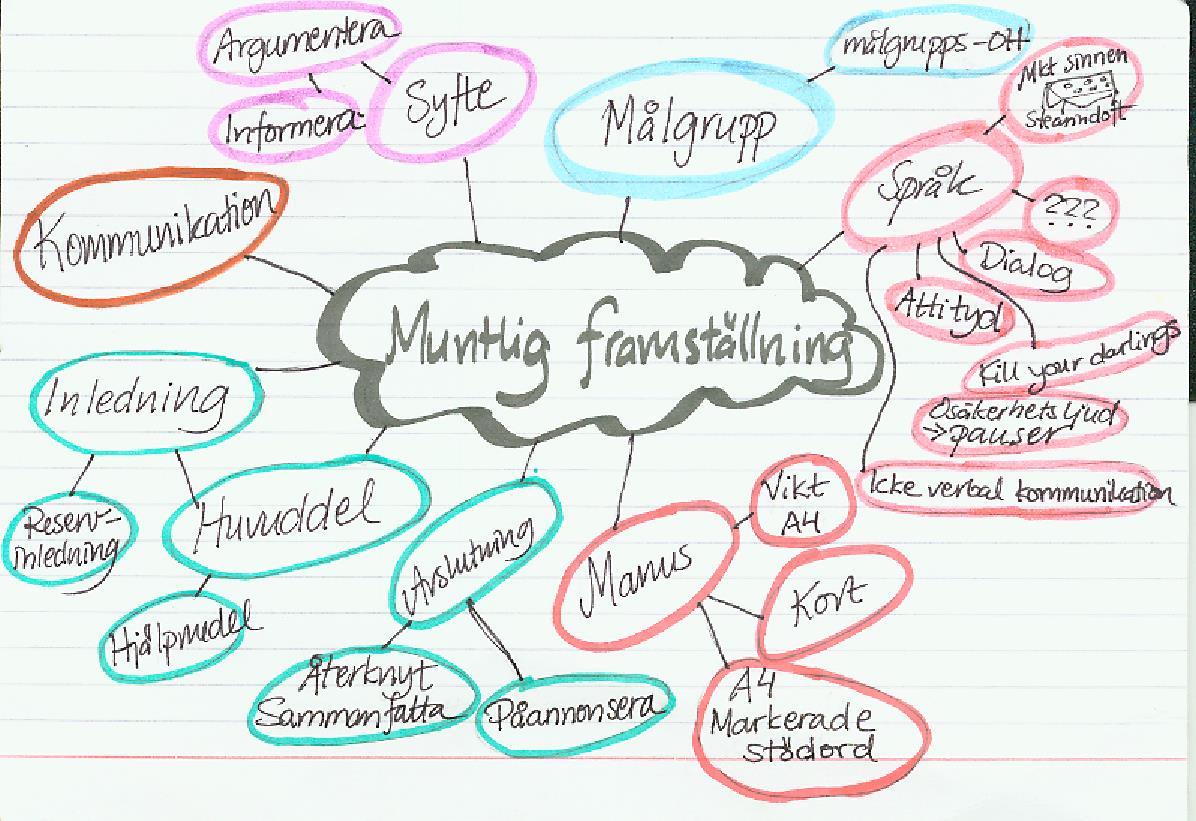 Argumentera
Syfte
Informera
Målgrupp
målgrupps-
Mkt sinnen
Språk
???
Dialog
Attityd
Kill your darlings
Osäkerhetsljud
→pauser
Icke verbal kommunikation
Kommunikation
Muntlig framställning
Inledning
Reserv-
inledning
Huvuddel
Hjälpmedel
Avslutning
Återknyt
Sammanfatta
Påannonsera
Manus
Vikt
A4
Kort
A4
Markerade
stödord